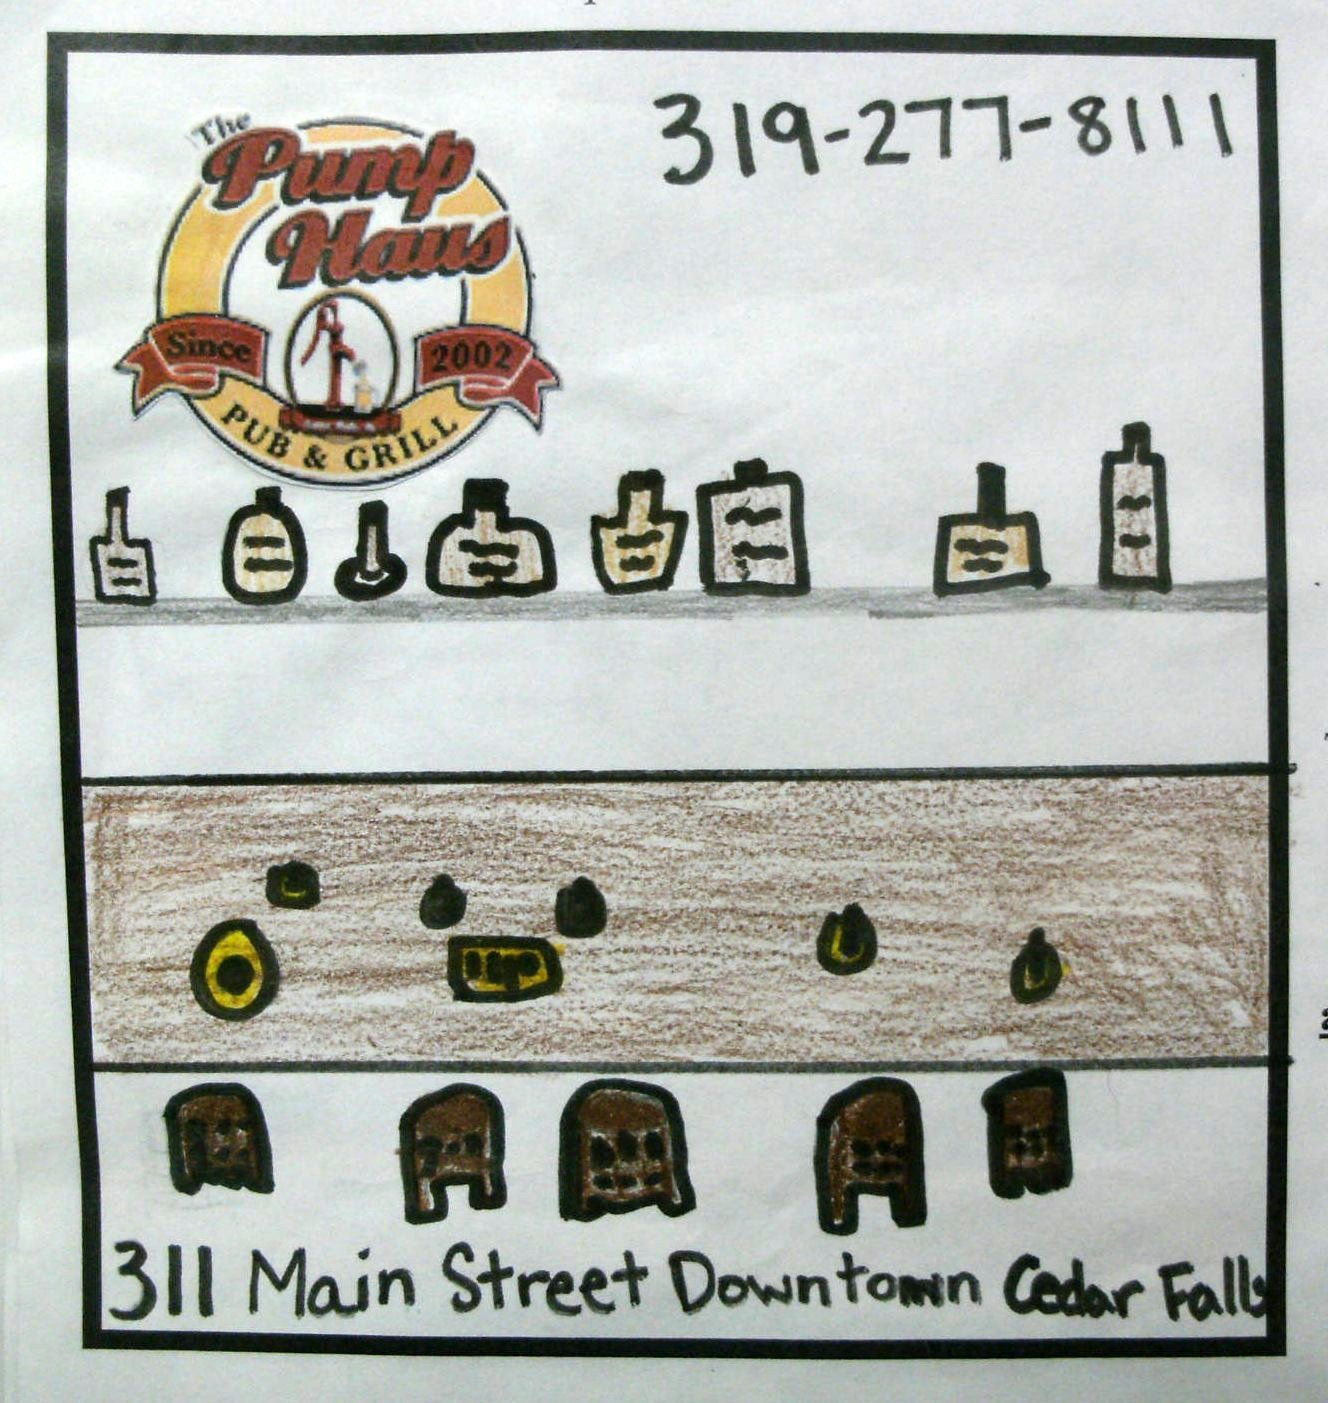 The
Pump
Haus
Since 2002
PUB & GRILL
319-277-8111
311 Main Street Downtown Cedar Falls